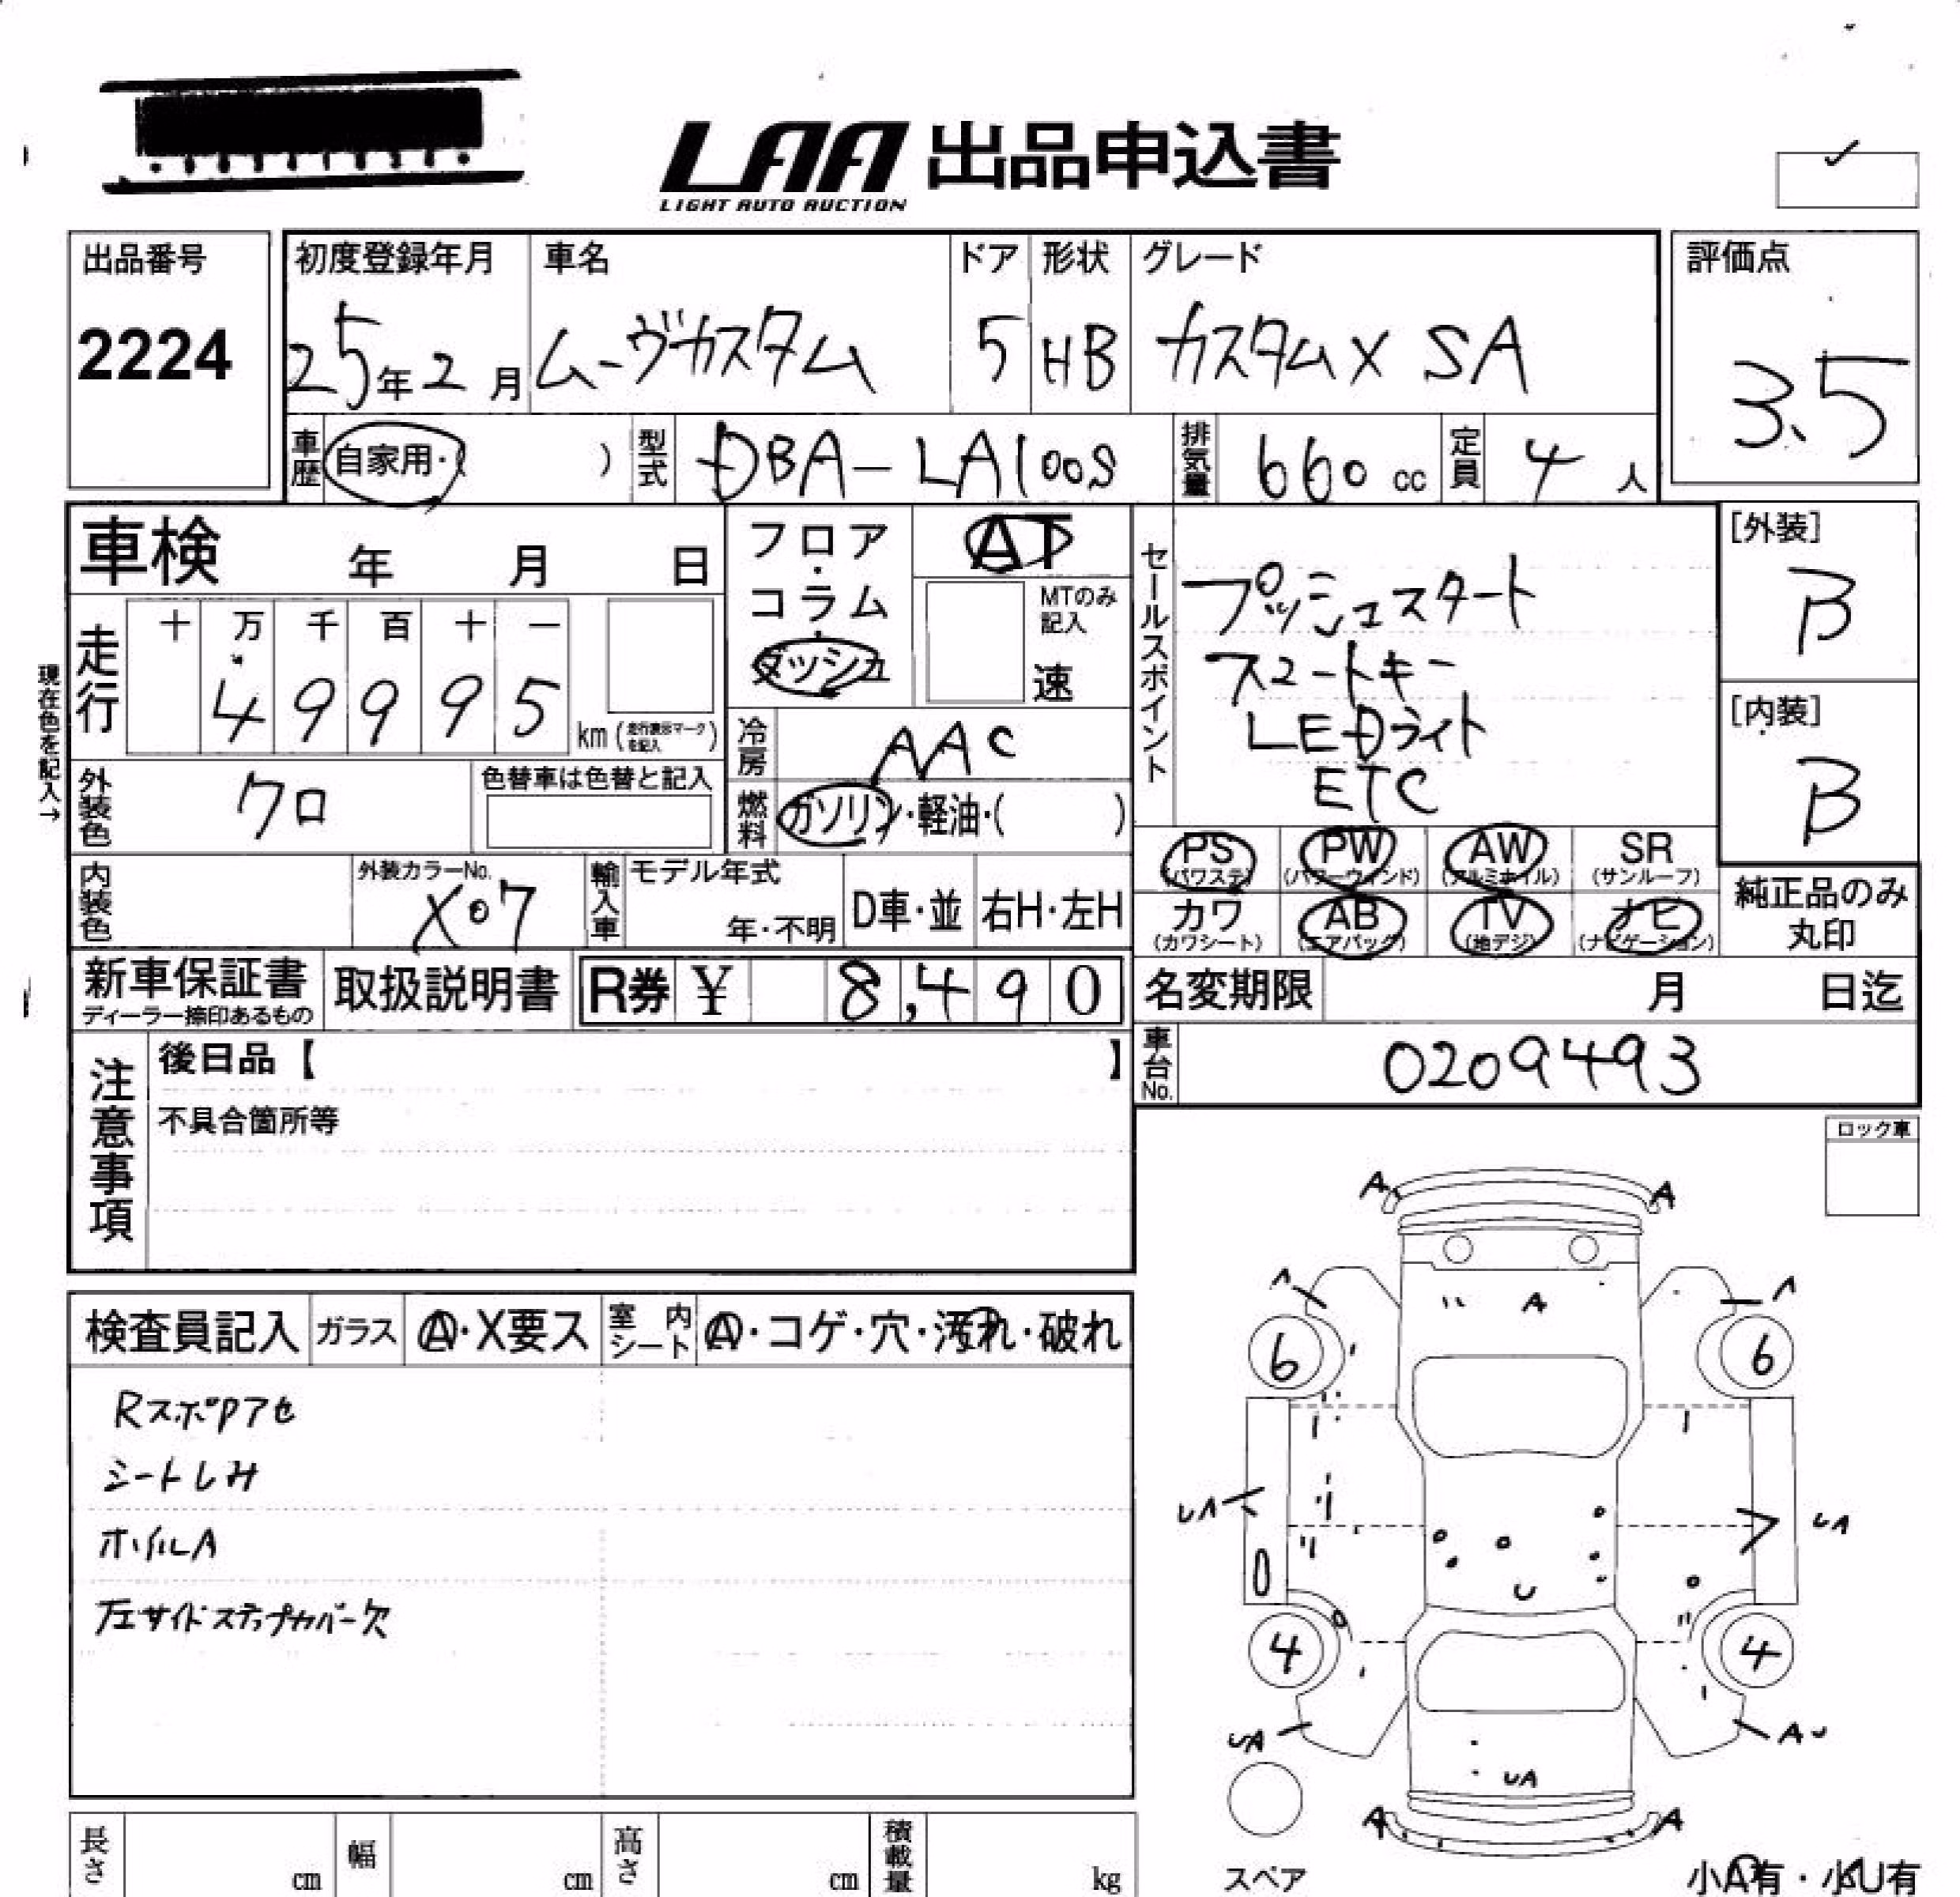 LAA 出品申込書
LIGHT AUTO AUCTION
出品番号
2224
初度登録年月
25年2月
車名
ムーヴカスタム
ドア
5
形状
HB
グレード
カスタムX SA
評価点
3.5
車歴 自家用・( )
型式 DBA-LA100S
排気量 660 cc
定員 4 人
車検 年 月 日
フロア・コラム・ダッシュ
AT
MTのみ記入
速
セールスポイント
プッシュスタート
スマートキー
LEDライト
ETC
[外装]
B
[内装]
B
現在色を記入→
走行
十 万 千 百 十 一
4 9 9 9 5
km (走行表示マークを記入)
冷房 AAC
外装色 クロ
色替車は色替と記入
燃料 ガソリン・軽油・( )
PS (パワステ) PW (パワーウィンド) AW (アルミホイル) SR (サンルーフ)
カワ (カワシート) AB (エアバッグ) TV (地デジ) ナビ (ナビゲーション)
純正品のみ丸印
内装色
外装カラーNo.
X07
輸入車 モデル年式
年・不明
D車・並 右H・左H
新車保証書
ディーラー捺印あるもの
取扱説明書
R券 ¥ 8,490
名変期限 月 日迄
車台No. 0209493
注意事項
後日品【 】
不具合箇所等
ロック車
検査員記入 ガラス A・X要ス 室内シート A・コゲ・穴・汚れ・破れ
RスポPアセ
シートしみ
ホイルA
左サイドステップカバー欠
A A
A A A
6 6
UA UA
U
4 4
UA AU
UA
A A
スペア
小A有・小U有
長さ cm 幅 cm 高さ cm 積載量 kg